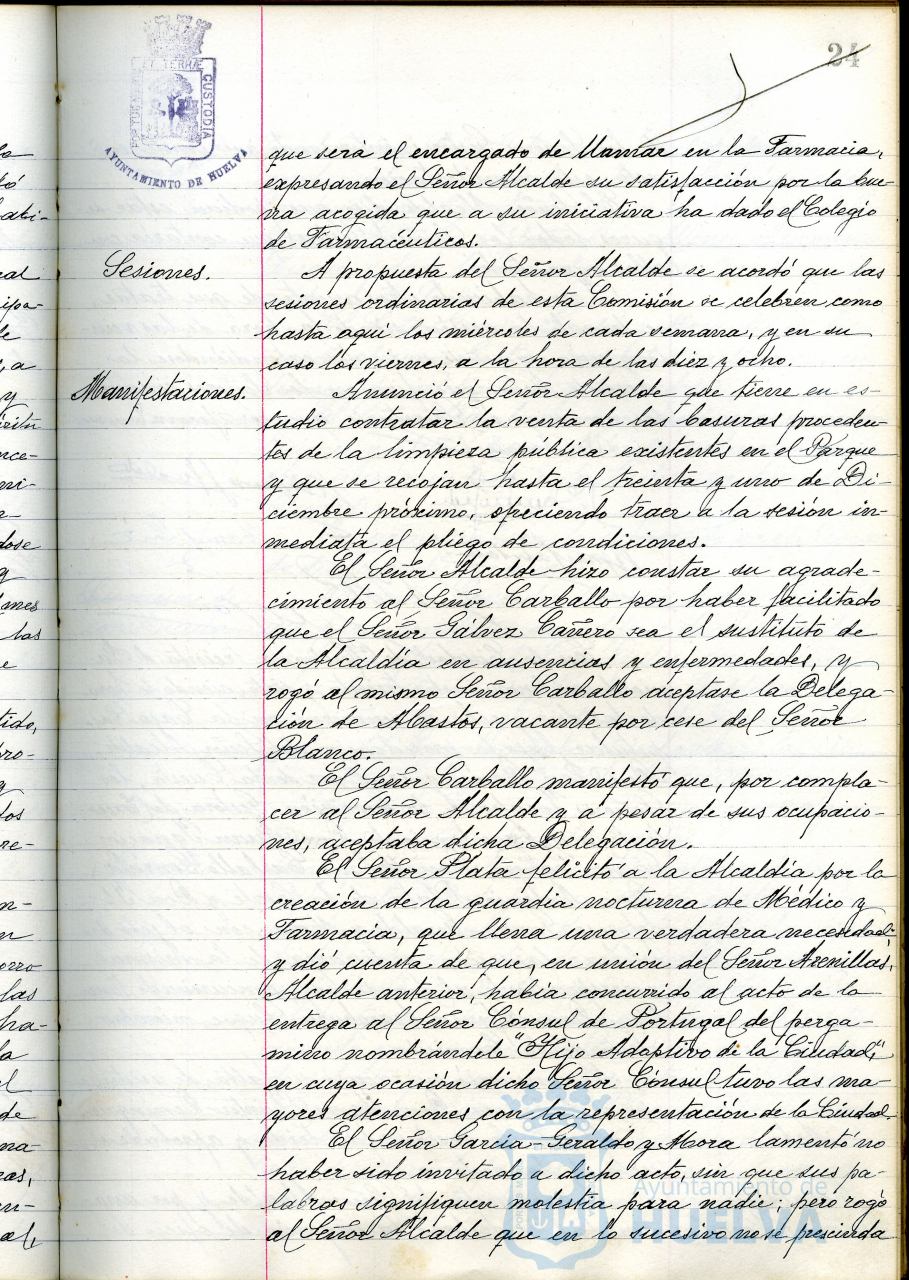 24
PORTUS MARIS ET TERRÆ CUSTODIA
AYUNTAMIENTO DE HUELVA
que será el encargado de llamar en la Farmacia,
expresando el Señor Alcalde su satisfacción por la bue-
na acogida que a su iniciativa ha dado el Colegio
de Farmacéuticos.
Sesiones.
A propuesta del Señor Alcalde se acordó que las
sesiones ordinarias de esta Comisión se celebren como
hasta aquí los miércoles de cada semana, y en su
caso los viernes, a la hora de las diez y ocho.
Manifestaciones.
Anunció el Señor Alcalde que tiene en es-
tudio contratar la venta de las basuras proceden-
tes de la limpieza pública existentes en el Parque
y que se recojan hasta el treinta y uno de Di-
ciembre próximo, ofreciendo traer a la sesión in-
mediata el pliego de condiciones.
El Señor Alcalde hizo constar su agrade-
cimiento al Señor Carballo por haber facilitado
que el Señor Gálvez Cañero sea el sustituto de
la Alcaldía en ausencias y enfermedades, y
rogó al mismo Señor Carballo aceptase la Delega-
ción de Abastos, vacante por cese del Señor
Blanco.
El Señor Carballo manifestó que, por compla-
cer al Señor Alcalde y a pesar de sus ocupacio-
nes, aceptaba dicha Delegación.
El Señor Plata felicitó a la Alcaldía por la
creación de la guardia nocturna de Médico y
Farmacia, que llena una verdadera necesidad,
y dió cuenta de que, en unión del Señor Arenillas,
Alcalde anterior, había concurrido al acto de la
entrega al Señor Cónsul de Portugal del perga-
mino nombrándole "Hijo Adoptivo de la Ciudad",
en cuya ocasión dicho Señor Cónsul tuvo las ma-
yores atenciones con la representación de la Ciudad.
El Señor Garcia-Geraldo y Mora lamentó no
haber sido invitado a dicho acto, sin que sus pa-
labras signifiquen molestia para nadie; pero rogó
al Señor Alcalde que en lo sucesivo no se prescinda
Ayuntamiento de
HUELVA